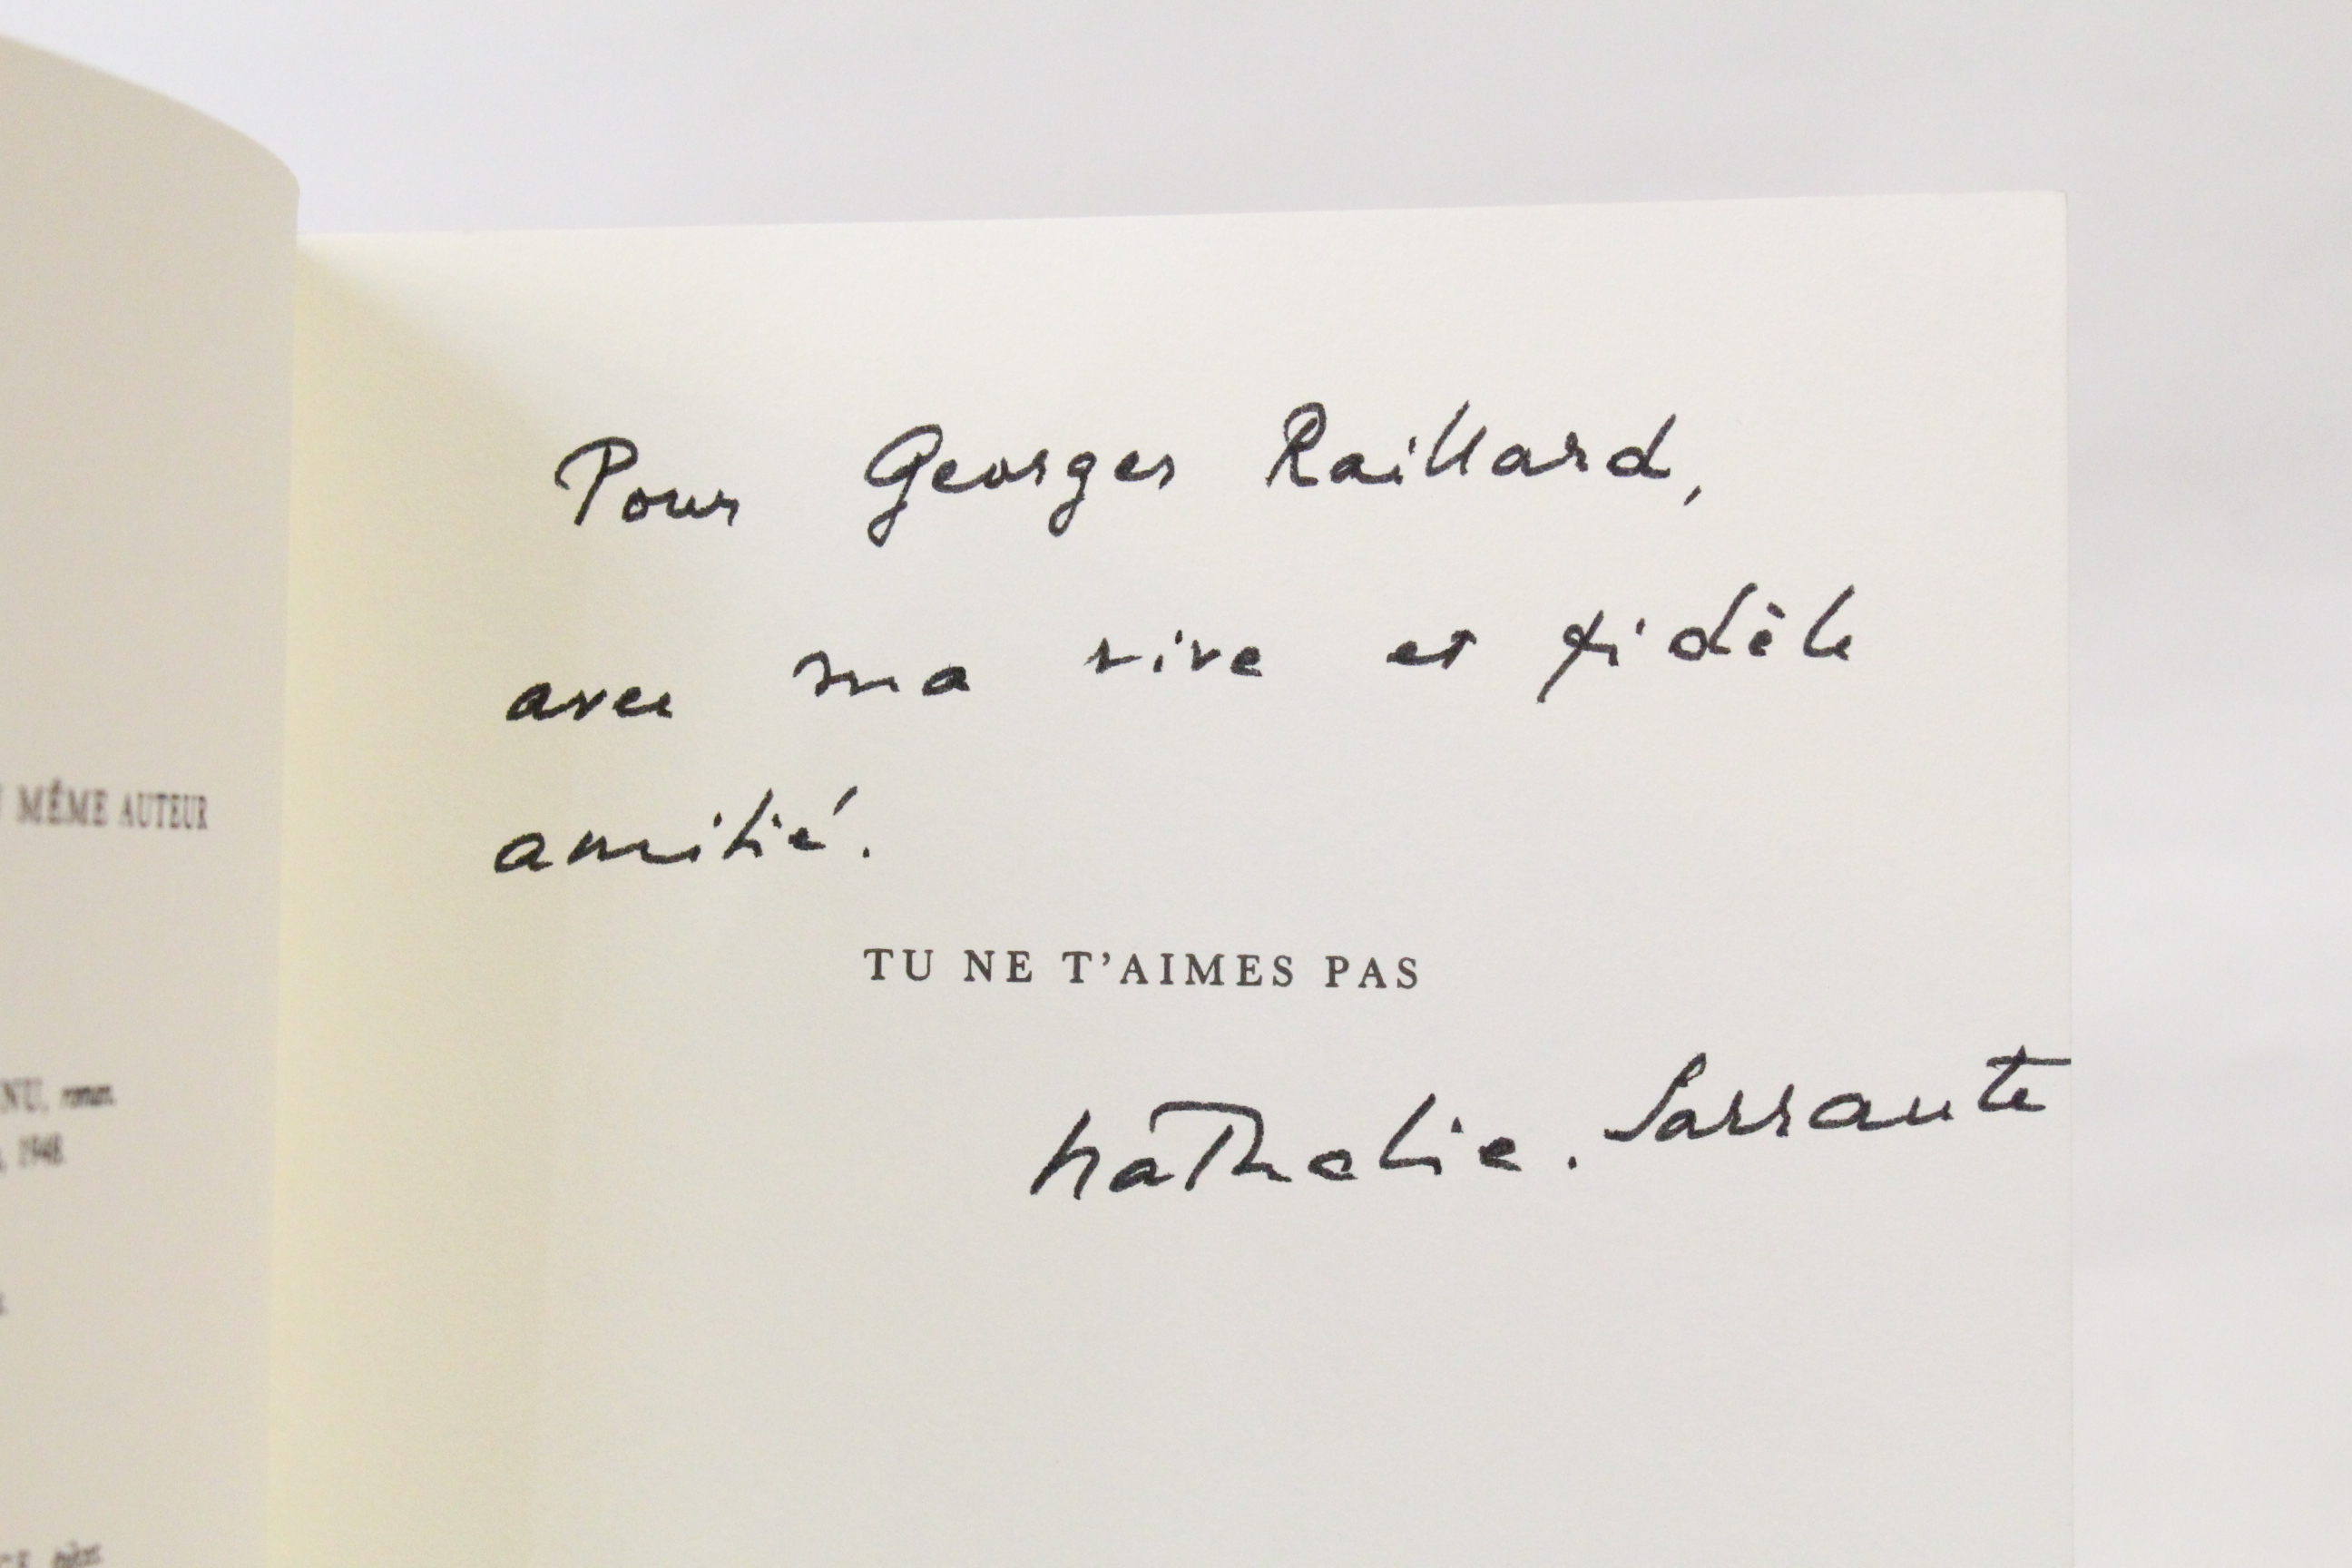 MÊME AUTEUR
NU, roman.
1948.
Pour Georges Raillard,
avec ma vive et fidèle
amitié.
TU NE T'AIMES PAS
Nathalie. Sarraute